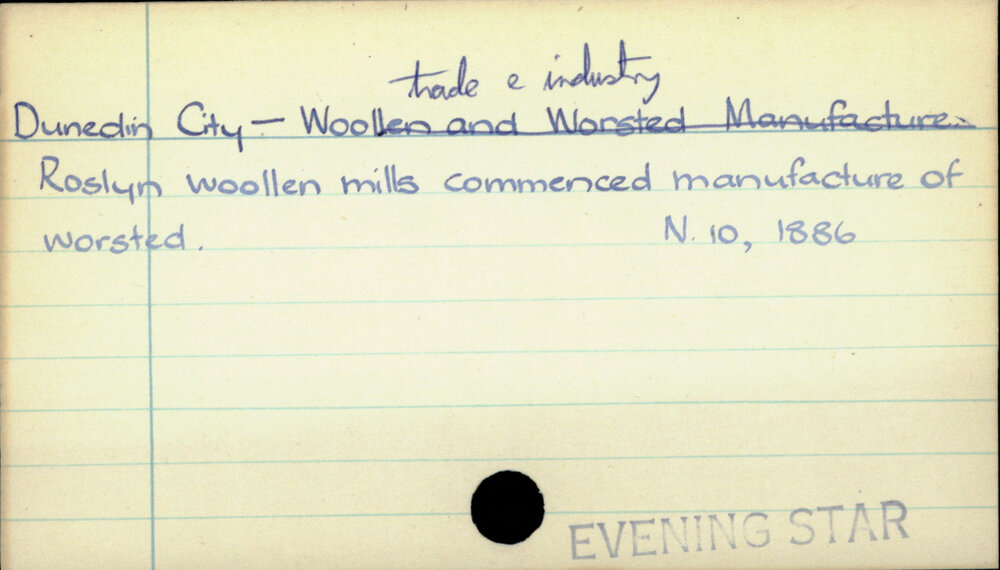 trade e industry
Dunedin City - Woollen and Worsted Manufacture.
Roslyn woollen mills commenced manufacture of
worsted. N. 10, 1886
EVENING STAR